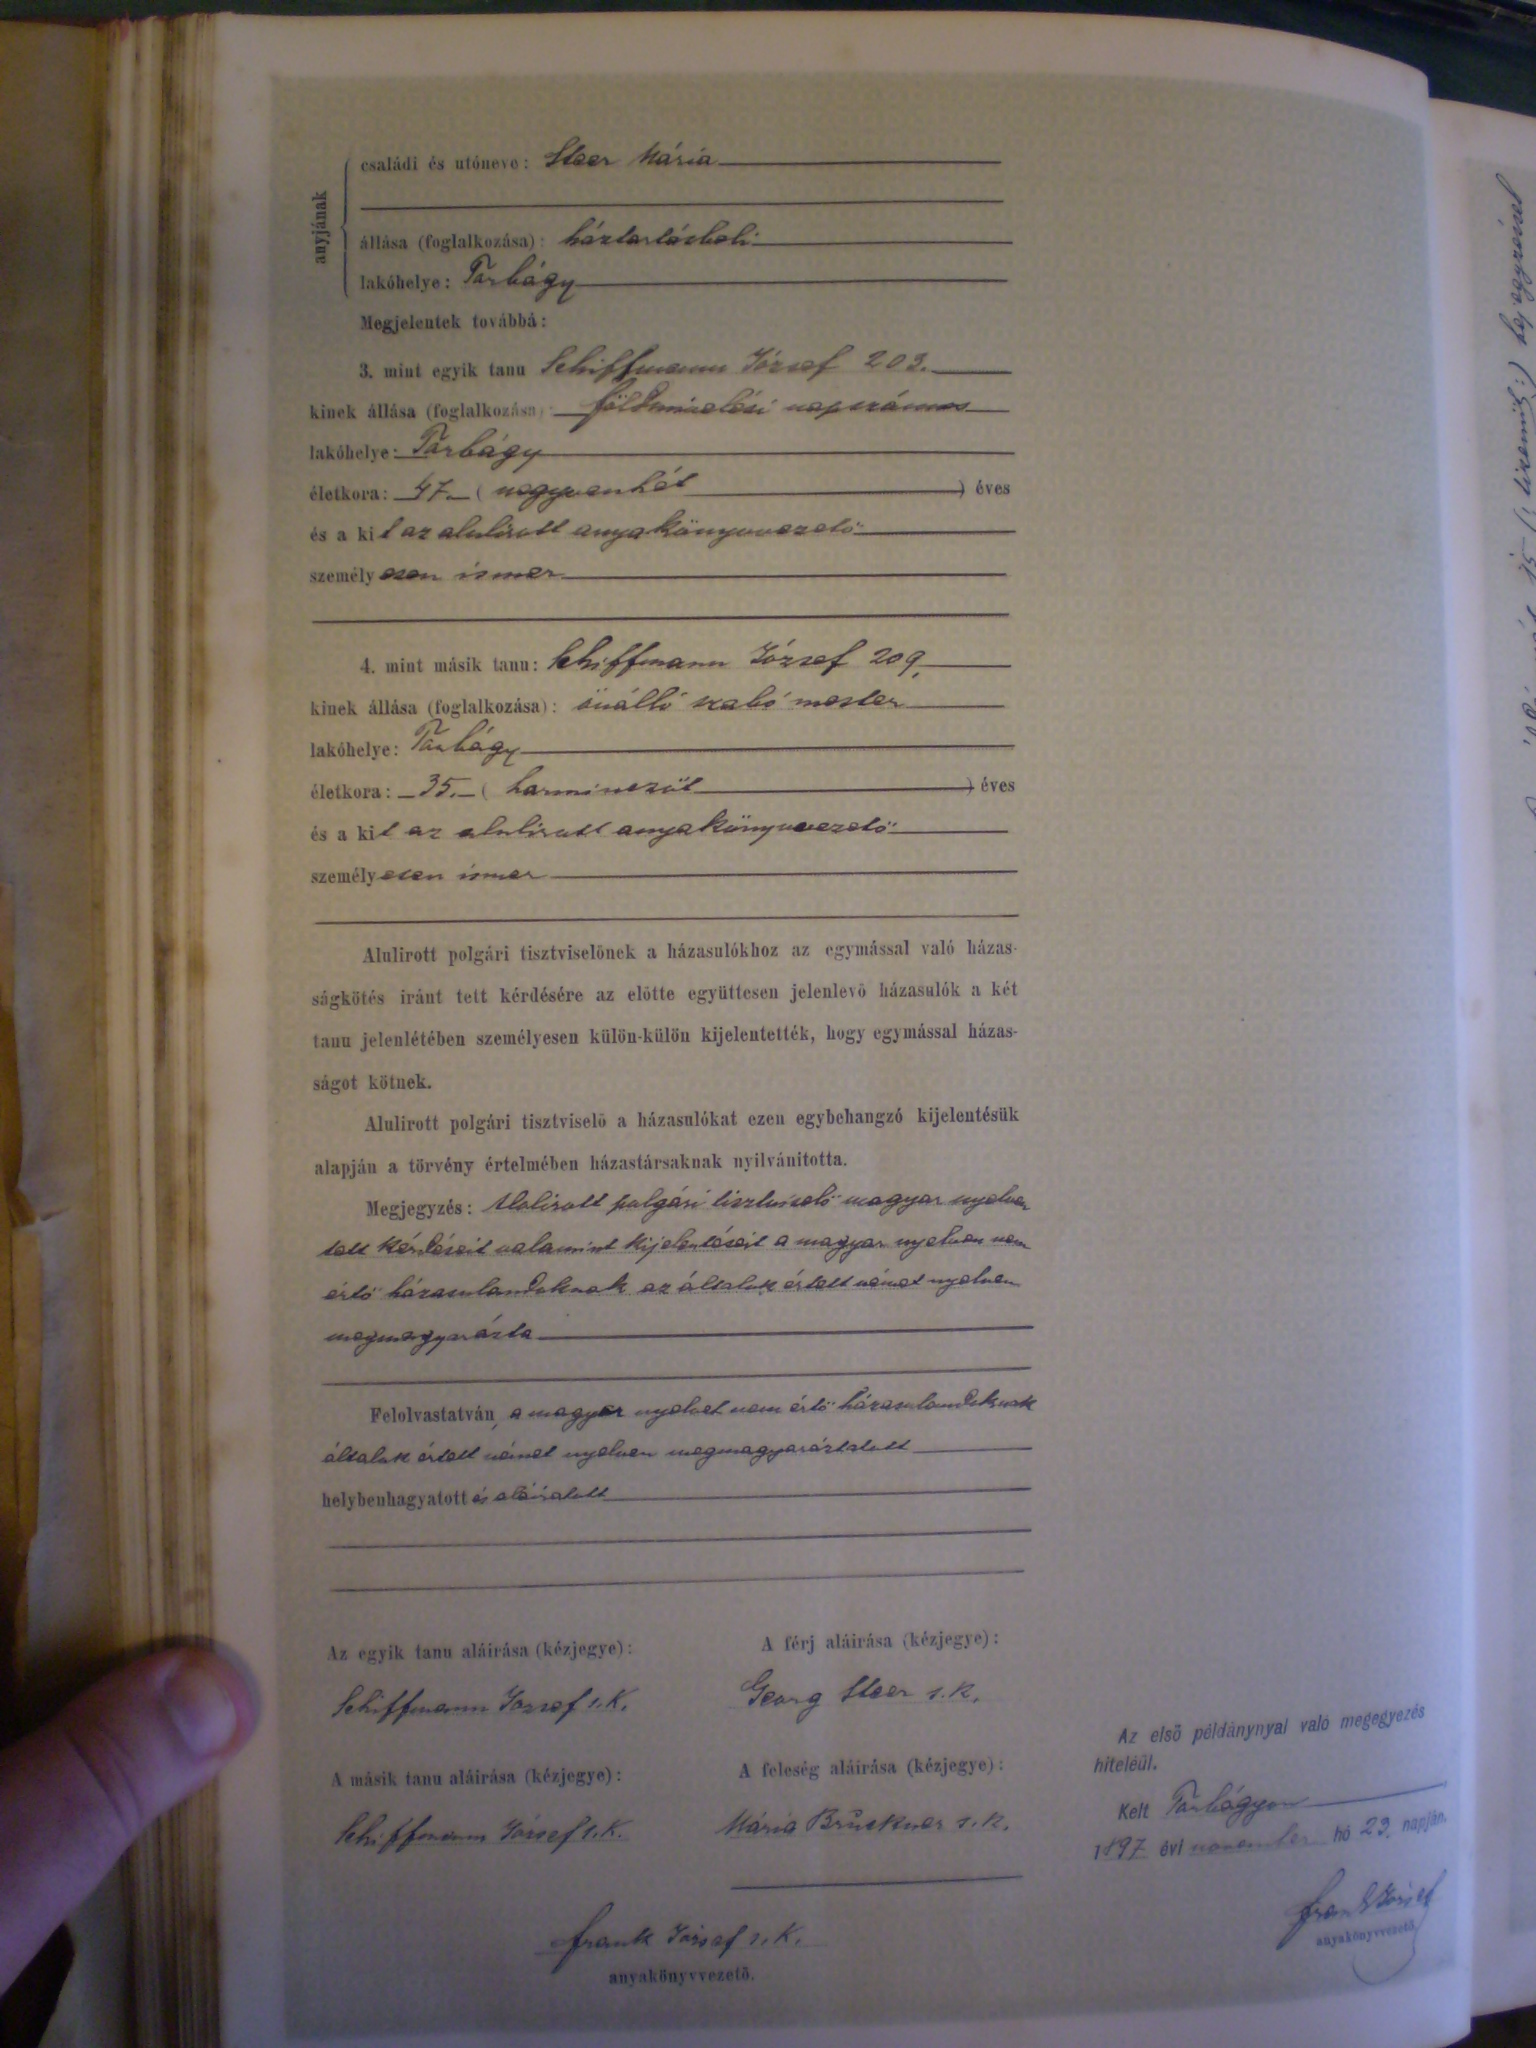 anyjának
családi és utóneve: Steer Mária
állása (foglalkozása): háztartásbeli
lakóhelye: Torbágy
Megjelentek továbbá:
3. mint egyik tanu Schiffmann József 203.
kinek állása (foglalkozása): földmivelési napszámos
lakóhelye: Torbágy
életkora: 47. (negyvenhét) éves
és a kit az alulirott anyakönyvvezető
személyesen ismer
4. mint másik tanu: Schiffmann József 209.
kinek állása (foglalkozása): önálló szabó mester
lakóhelye: Torbágy
életkora: 35. (harminczöt) éves
és a kit az alulirott anyakönyvvezető
személyesen ismer
Alulirott polgári tisztviselőnek a házasulókhoz az egymással való házas-
ságkötés iránt tett kérdésére az előtte együttesen jelenlevő házasulók a két
tanu jelenlétében személyesen külön-külön kijelentették, hogy egymással házas-
ságot kötnek.
Alulirott polgári tisztviselő a házasulókat ezen egybehangzó kijelentésük
alapján a törvény értelmében házastársaknak nyilvánitotta.
Megjegyzés: Alolirott polgári tisztviselő magyar nyelven
tett kérdéseit valamint kijelentéseit a magyar nyelven nem
értő házasulandoknak az általuk értett német nyelven
megmagyarázta
Felolvastatván, a magyar nyelvet nem értő házasulandoknak
általuk értett német nyelven megmagyaráztatott
helybenhagyatott és aláiratott
Az egyik tanu aláirása (kézjegye):
A férj aláirása (kézjegye):
Schiffmann József s.k.
Georg Steer s.k.
A másik tanu aláirása (kézjegye):
A feleség aláirása (kézjegye):
Schiffmann József s.k.
Mária Brückner s.k.
Frank József s.k.
anyakönyvvezető.
Az első példánynyal való megegyezés
hiteléül.
Kelt Torbágyon
1897 évi november hó 23. napján.
Frank József
anyakönyvvezető.